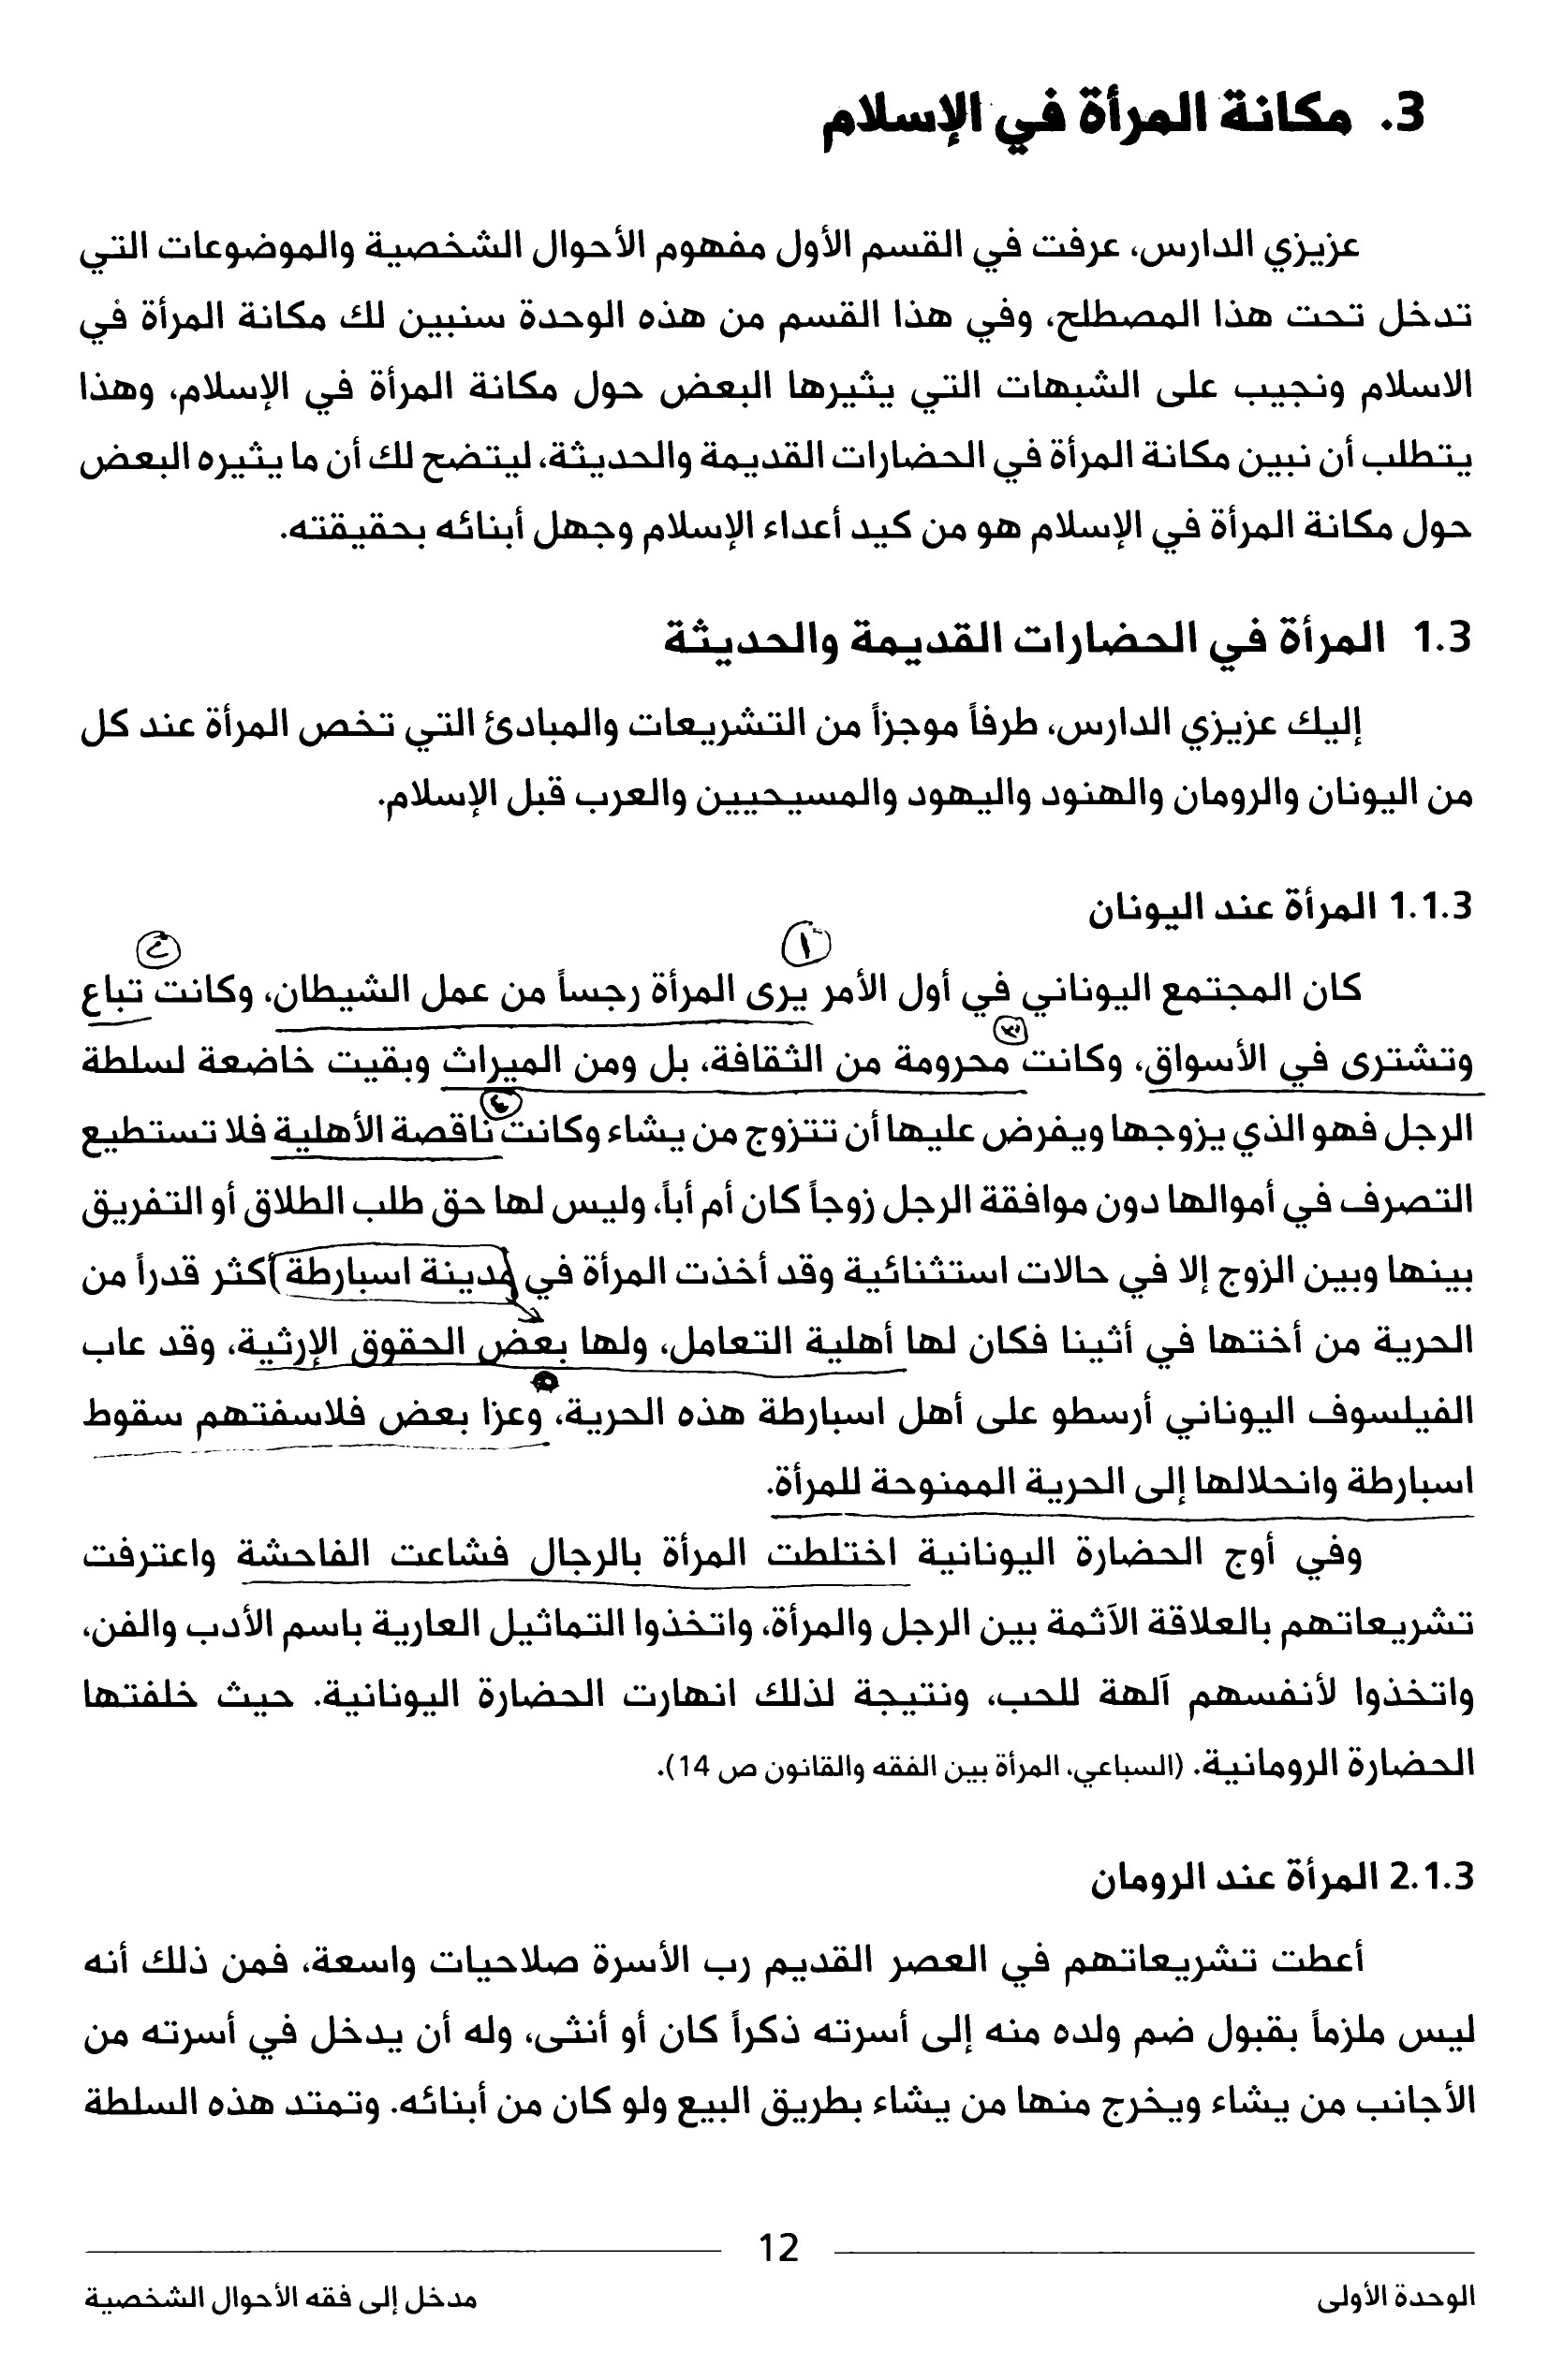 3. مكانة المرأة في الإسلام
عزيزي الدارس، عرفت في القسم الأول مفهوم الأحوال الشخصية والموضوعات التي
تدخل تحت هذا المصطلح، وفي هذا القسم من هذه الوحدة سنبين لك مكانة المرأة في
الاسلام ونجيب على الشبهات التي يثيرها البعض حول مكانة المرأة في الإسلام، وهذا
يتطلب أن نبين مكانة المرأة في الحضارات القديمة والحديثة، ليتضح لك أن ما يثيره البعض
حول مكانة المرأة في الإسلام هو من كيد أعداء الإسلام وجهل أبنائه بحقيقته.
1.3 المرأة في الحضارات القديمة والحديثة
إليك عزيزي الدارس، طرفاً موجزاً من التشريعات والمبادئ التي تخص المرأة عند كل
من اليونان والرومان والهنود واليهود والمسيحيين والعرب قبل الإسلام.
1.1.3 المرأة عند اليونان
١ ٢
كان المجتمع اليوناني في أول الأمر يرى المرأة رجساً من عمل الشيطان، وكانت تباع
٣
وتشترى في الأسواق، وكانت محرومة من الثقافة، بل ومن الميراث وبقيت خاضعة لسلطة
٤
الرجل فهو الذي يزوجها ويفرض عليها أن تتزوج من يشاء وكانت ناقصة الأهلية فلا تستطيع
التصرف في أموالها دون موافقة الرجل زوجاً كان أم أباً، وليس لها حق طلب الطلاق أو التفريق
بينها وبين الزوج إلا في حالات استثنائية وقد أخذت المرأة في مدينة اسبارطة أكثر قدراً من
الحرية من أختها في أثينا فكان لها أهلية التعامل، ولها بعض الحقوق الإرثية، وقد عاب
الفيلسوف اليوناني أرسطو على أهل اسبارطة هذه الحرية، وعزا بعض فلاسفتهم سقوط
اسبارطة وانحلالها إلى الحرية الممنوحة للمرأة.
وفي أوج الحضارة اليونانية اختلطت المرأة بالرجال فشاعت الفاحشة واعترفت
تشريعاتهم بالعلاقة الآثمة بين الرجل والمرأة، واتخذوا التماثيل العارية باسم الأدب والفن،
واتخذوا لأنفسهم آلهة للحب، ونتيجة لذلك انهارت الحضارة اليونانية. حيث خلفتها
الحضارة الرومانية. (السباعي، المرأة بين الفقه والقانون ص 14).
2.1.3 المرأة عند الرومان
أعطت تشريعاتهم في العصر القديم رب الأسرة صلاحيات واسعة، فمن ذلك أنه
ليس ملزماً بقبول ضم ولده منه إلى أسرته ذكراً كان أو أنثى، وله أن يدخل في أسرته من
الأجانب من يشاء ويخرج منها من يشاء بطريق البيع ولو كان من أبنائه. وتمتد هذه السلطة
12
الوحدة الأولى مدخل إلى فقه الأحوال الشخصية